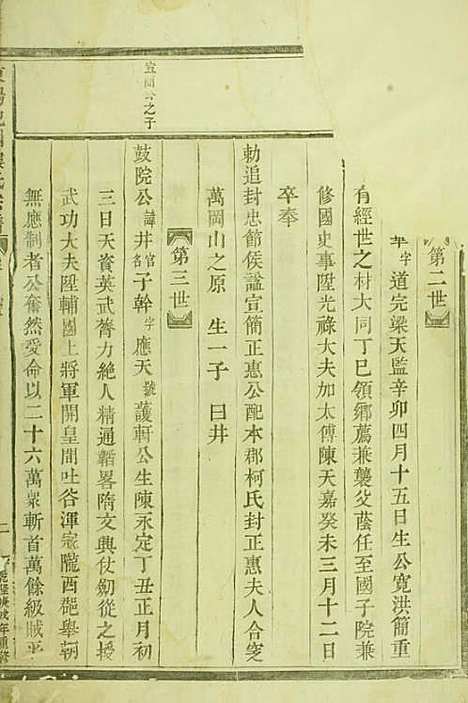 第二世
字道完梁天監辛卯四月十五日生公寬洪簡重
有經世之材大同丁巳領鄉薦兼襲父蔭任至國子院兼
修國史事陞光祿大夫加太傅陳天嘉癸未三月十二日
卒奉
勅追封忠節侯謚宣簡正惠公配本郡柯氏封正惠夫人合窆
萬岡山之原 生一子 曰井
宣簡公之子
第三世
鼓院公諱井官名子幹字應天號護軒公生陳永定丁丑正月初
三日天資英武膂力絶人精通韜畧隋文興仗劒從之授
武功大夫陞輔國上將軍開皇間吐谷渾寇隴西礎舉朝
無應制者公奮然受命以二十六萬衆斬首萬餘級賊平